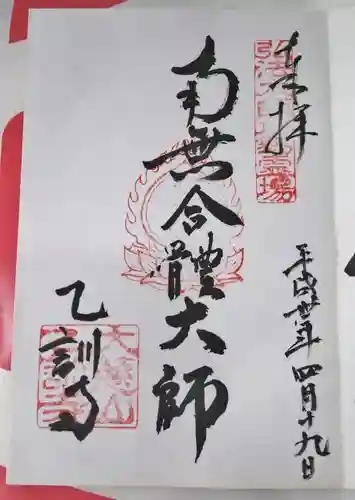 奉拝
平成廿年四月十九日
南無合體大師
乙訓寺